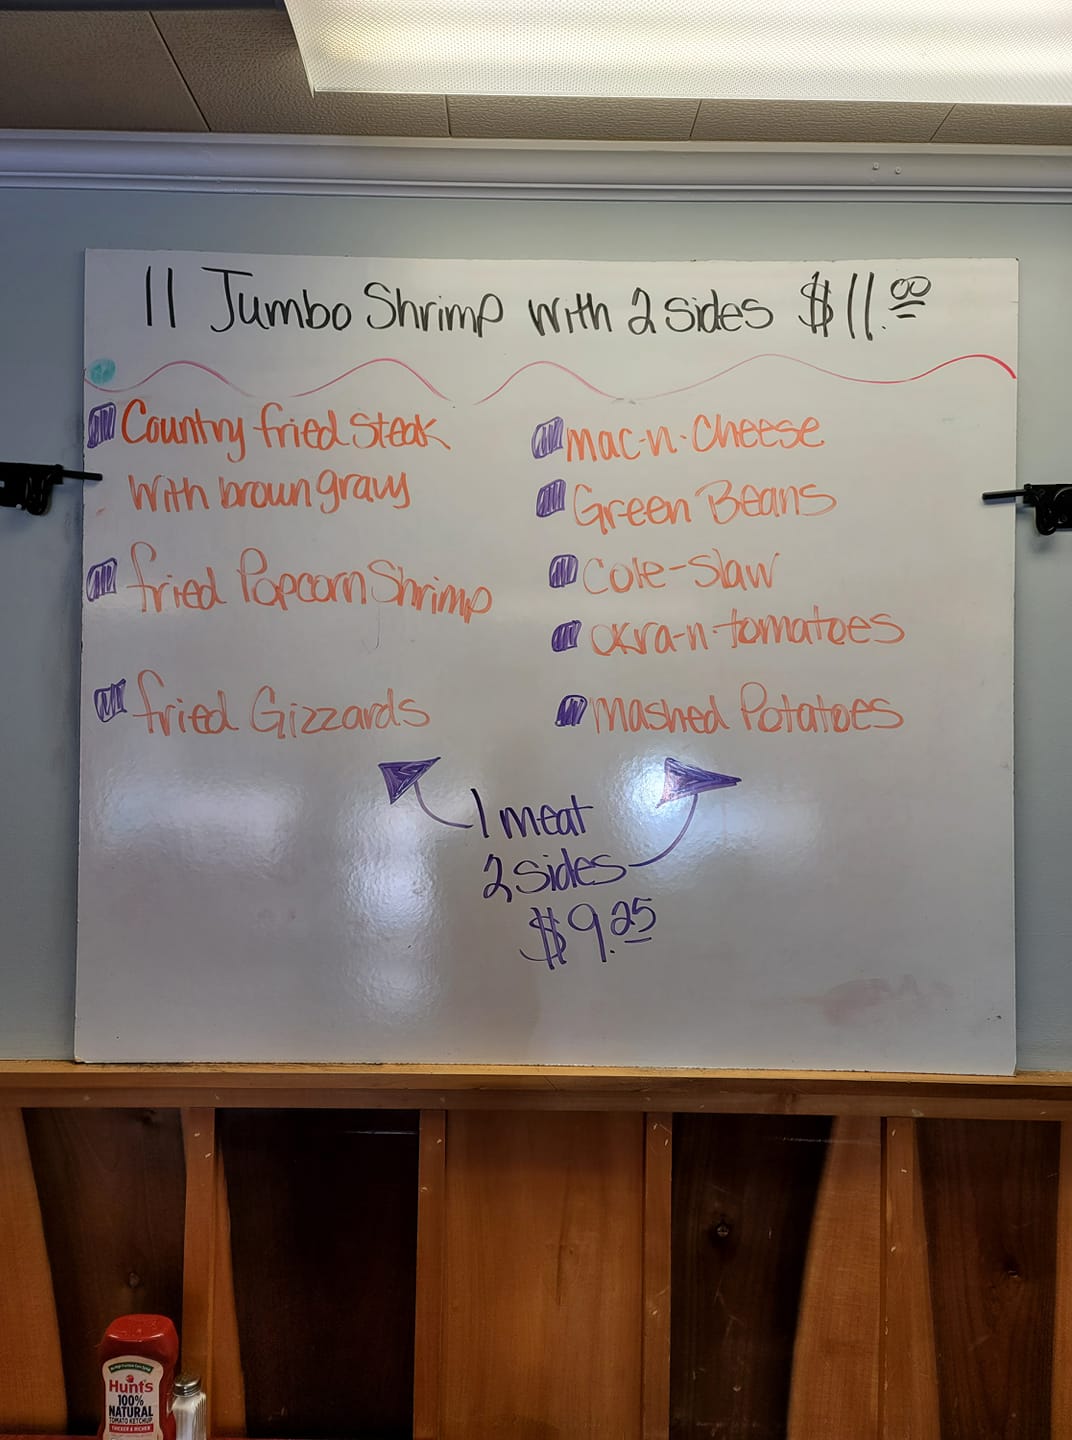 11 Jumbo Shrimp with 2 sides $11.00
Country fried Steak
with brown gravy
fried Popcorn Shrimp
fried Gizzards
mac-n-cheese
Green Beans
Cole-Slaw
okra-n-tomatoes
mashed Potatoes
1 meat
2 sides
$9.25
Hunt's
100%
NATURAL
TOMATO KETCHUP
THICKER & RICHER